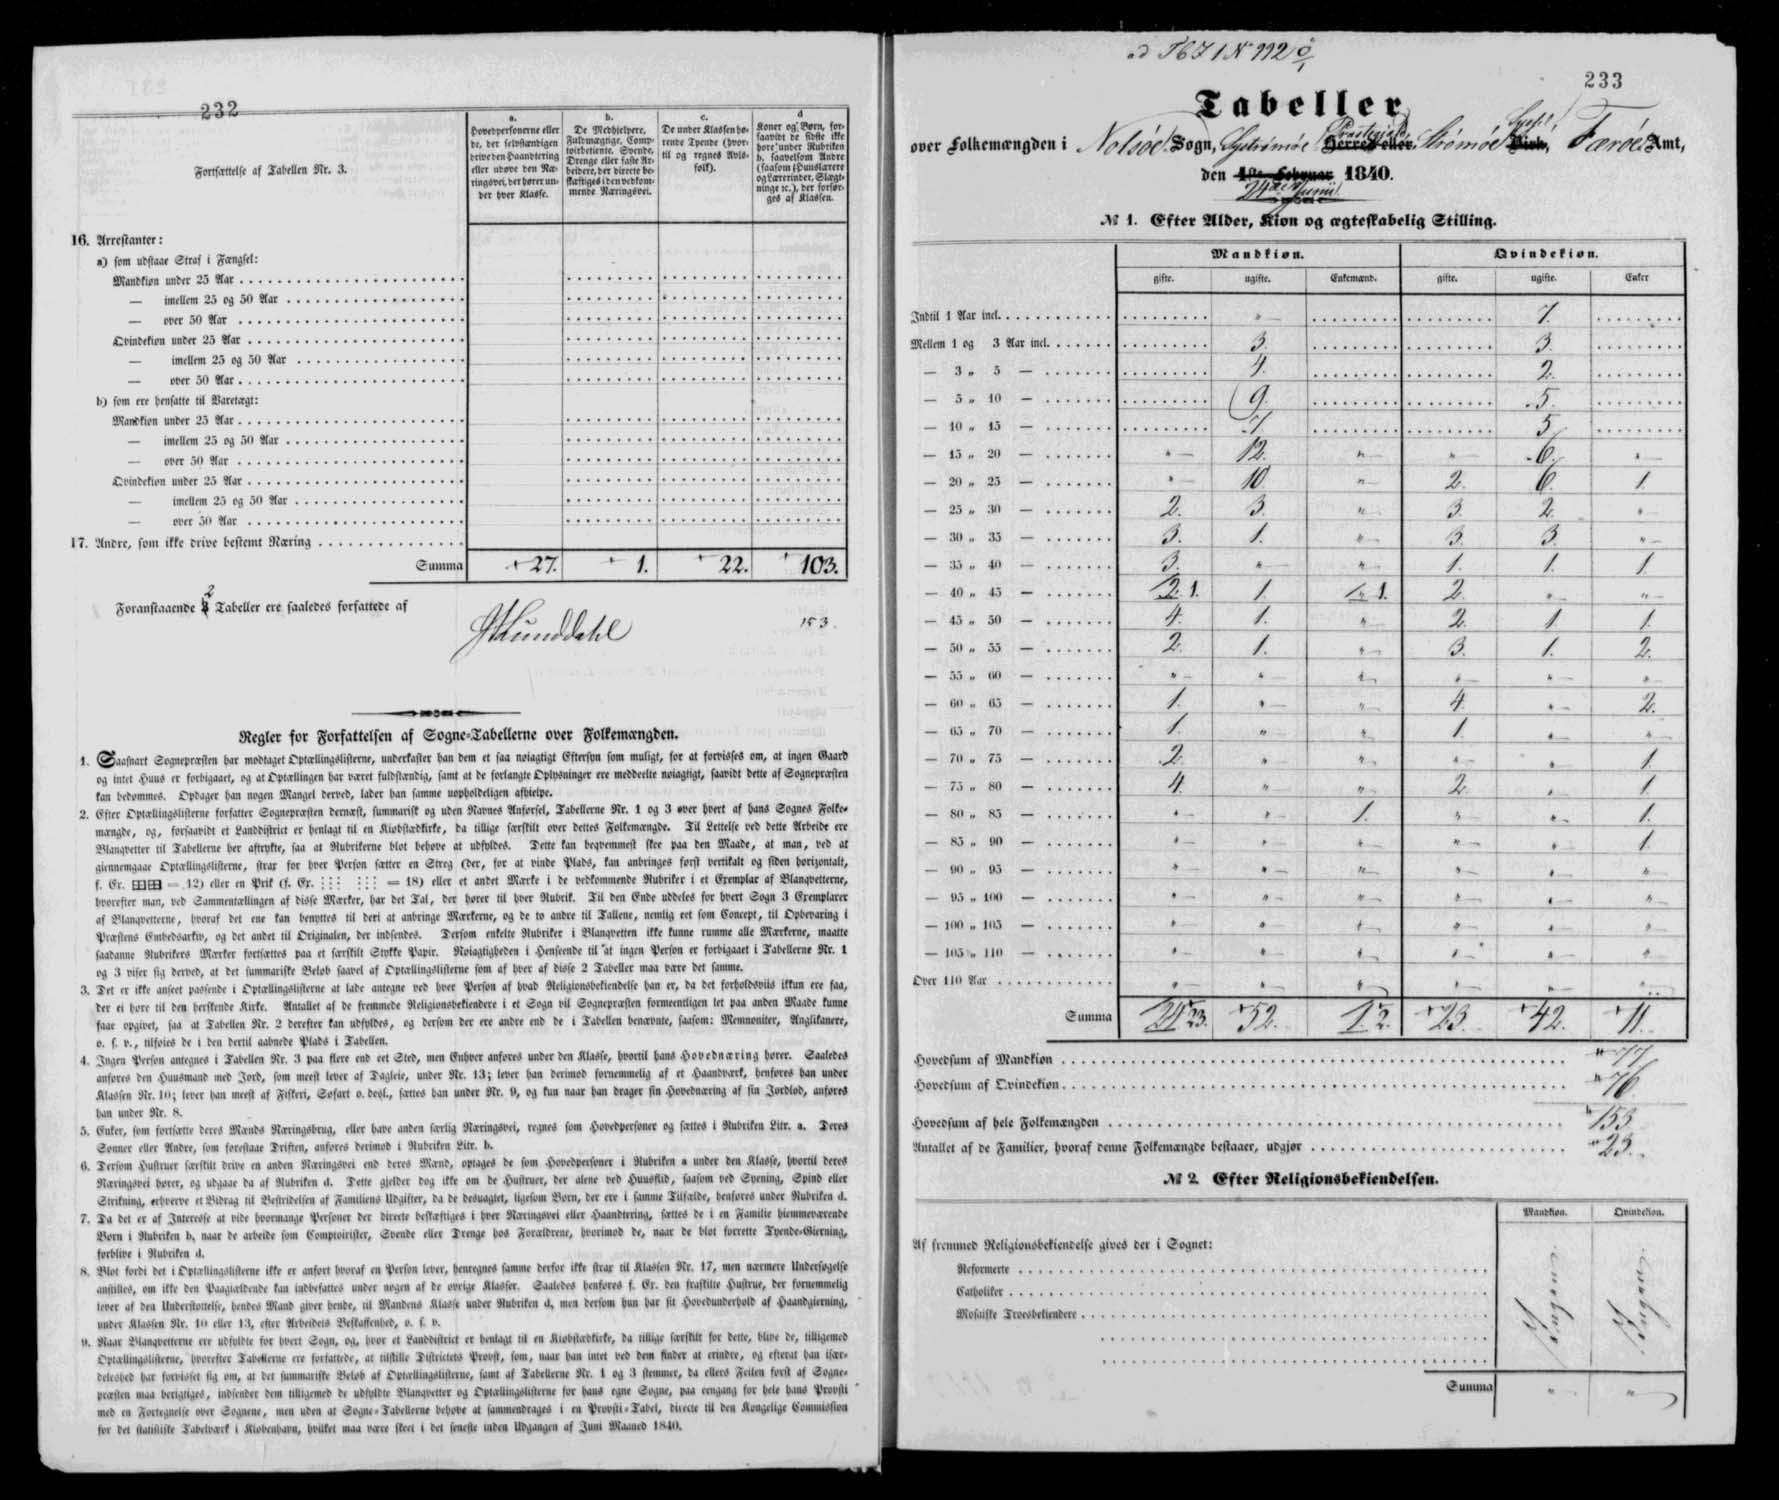 232
Fortsættelse af Tabellen Nr. 3.
a.
Hovedpersonerne eller
de, der selvstændigen
drive den Haandtering
eller udøve den Næ-
ringsvei, der hører un-
der hver Klasse.
b.
De Medhjelpere,
Fuldmægtige, Comp-
toirbetjente, Svende,
Drenge eller faste Ar-
beidere, der directe be-
skæftiges i den vedkom-
mende Næringsvei.
c.
De under Klassen hø-
rende Tyende (hvor-
til og regnes Avls-
folk).
d
Koner og Børn, for-
saavidt de sidste ikke
høre under Rubriken
b, saavelsom Andre
(saasom Huuslærere
og Lærerinder, Slægt-
ninge ꝛc.), der forsør-
ges af Klassen.
16. Arrestanter:
a) som udstaae Straf i Fængsel:
Mandkiøn under 25 Aar
— imellem 25 og 50 Aar
— over 50 Aar
Qvindekiøn under 25 Aar
— imellem 25 og 50 Aar
— over 50 Aar
b) som ere hensatte til Varetægt:
Mandkiøn under 25 Aar
— imellem 25 og 50 Aar
— over 50 Aar
Qvindekiøn under 25 Aar
— imellem 25 og 50 Aar
— over 50 Aar
17. Andre, som ikke drive bestemt Næring
Summa + 27. + 1. + 22. + 103.
2
Foranstaaende 3 Tabeller ere saaledes forfattede af
153.
Regler for Forfattelsen af Sogne-Tabellerne over Folkemængden.
1. Saasnart Sognepræsten har modtaget Optællingslisterne, underkaster han dem et saa nøiagtigt Eftersyn som muligt, for at forvisses om, at ingen Gaard
og intet Huus er forbigaaet, og at Optællingen har været fuldstændig, samt at de forlangte Oplysninger ere meddeelte nøiagtigt, saavidt dette af Sognepræsten
kan bedømmes. Opdager han nogen Mangel derved, lader han samme uopholdeligen afhielpe.
2. Efter Optællingslisterne forfatter Sognepræsten dernæst, summarisk og uden Navnes Anførsel, Tabellerne Nr. 1 og 3 over hvert af hans Sognes Folke-
mængde, og, forsaavidt et Landdistrict er henlagt til en Kiøbstædkirke, da tillige særskilt over dettes Folkemængde. Til Lettelse ved dette Arbeide ere
Blanqvetter til Tabellerne her aftrykte, saa at Rubrikerne blot behøve at udfyldes. Dette kan beqvemmest skee paa den Maade, at man, ved at
giennemgaae Optællingslisterne, strax for hver Person sætter en Streg (der, for at vinde Plads, kan anbringes først vertikalt og siden horizontalt,
f. Ex. = 12) eller en Prik (f. Ex. ⋮⋮⋮ ⋮⋮⋮ = 18) eller et andet Mærke i de vedkommende Rubriker i et Exemplar af Blanqvetterne,
hvorefter man, ved Sammentællingen af disse Mærker, har det Tal, der hører til hver Rubrik. Til den Ende uddeles for hvert Sogn 3 Exemplarer
af Blanqvetterne, hvoraf det ene kan benyttes til deri at anbringe Mærkerne, og de to andre til Tallene, nemlig eet som Concept, til Opbevaring i
Præstens Embedsarkiv, og det andet til Originalen, der indsendes. Dersom enkelte Rubriker i Blanqvetten ikke kunne rumme alle Mærkerne, maatte
saadanne Rubrikers Mærker fortsættes paa et særskilt Stykke Papir. Nøiagtigheden i Henseende til at ingen Person er forbigaaet i Tabellerne Nr. 1
og 3 viser sig derved, at det summariske Beløb saavel af Optællingslisterne som af hver af disse 2 Tabeller maa være det samme.
3. Det er ikke anseet passende i Optællingslisterne at lade antegne ved hver Person af hvad Religionsbekiendelse han er, da det forholdsviis ikkun ere faa,
der ei høre til den herskende Kirke. Antallet af de fremmede Religionsbekiendere i et Sogn vil Sognepræsten formeentligen let paa anden Maade kunne
faae opgivet, saa at Tabellen Nr. 2 derefter kan udfyldes, og dersom der ere andre end de i Tabellen benævnte, saasom: Memnoniter, Anglikanere,
o. s. v., tilføies de i den dertil aabnede Plads i Tabellen.
4. Ingen Person antegnes i Tabellen Nr. 3 paa flere end eet Sted, men Enhver anføres under den Klasse, hvortil hans Hovednæring hører. Saaledes
anføres den Huusmand med Jord, som meest lever af Dagleie, under Nr. 13; lever han derimod fornemmelig af et Haandværk, henføres han under
Klassen Nr. 10; lever han meest af Fiskeri, Søfart o. desl., sættes han under Nr. 9, og kun naar han drager sin Hovednæring af sin Jordlod, anføres
han under Nr. 8.
5. Enker, som fortsætte deres Mænds Næringsbrug, eller have anden særlig Næringsvei, regnes som Hovedpersoner og sættes i Rubriken Litr. a. Deres
Sønner eller Andre, som forestaae Driften, anføres derimod i Rubriken Litr. b.
6. Dersom Hustruer særskilt drive en anden Næringsvei end deres Mænd, optages de som Hovedpersoner i Rubriken a under den Klasse, hvortil deres
Næringsvei hører, og udgaae da af Rubriken d. Dette gjelder dog ikke om de Hustruer, der alene ved Huusflid, saasom ved Syening, Spind eller
Strikning, erhverve et Bidrag til Bestridelsen af Familiens Udgifter, da de desuagtet, ligesom Børn, der ere i samme Tilfælde, henføres under Rubriken d.
7. Da det er af Interesse at vide hvormange Personer der directe beskæftiges i hver Næringsvei eller Haandtering, sættes de i en Familie hiemmeværende
Børn i Rubriken b, naar de arbeide som Comptoirister, Svende eller Drenge hos Forældrene, hvorimod de, naar de blot forrette Tyende-Gierning,
forblive i Rubriken d.
8. Blot fordi det i Optællingslisterne ikke er anført hvoraf en Person lever, henregnes samme derfor ikke strax til Klassen Nr. 17, men nærmere Undersøgelse
anstilles, om ikke den Paagiældende kan indbefattes under nogen af de øvrige Klasser. Saaledes henføres f. Ex. den fraskilte Hustrue, der fornemmelig
lever af den Understøttelse, hendes Mand giver hende, til Mandens Klasse under Rubriken d, men dersom hun har sit Hovedunderhold af Haandgierning,
under Klassen Nr. 10 eller 13, efter Arbeidets Beskaffenhed, o. s. v.
9. Naar Blanqvetterne ere udfyldte for hvert Sogn, og, hvor et Landdistrict er henlagt til en Kiøbstædkirke, da tillige særskilt for dette, blive de, tilligemed
Optællingslisterne, hvorefter Tabellerne ere forfattede, at tilstille Districtets Provst, som, naar han intet ved dem finder at erindre, og efterat han især-
deleshed har forvisset sig om, at det summariske Beløb af Optællingslisterne, samt af Tabellerne Nr. 1 og 3 stemmer, da ellers Feilen først af Sogne-
præsten maa berigtiges, indsender dem tilligemed de udfyldte Blanqvetter og Optællingslisterne for hans egne Sogne, paa eengang for hele hans Provsti
med en Fortegnelse over Sognene, men uden at Sogne-Tabellerne behøve at sammendrages i en Provsti-Tabel, directe til den Kongelige Commission
for det statistiske Tabelværk i Kiøbenhavn, hvilket maa være skeet i det seneste inden Udgangen af Juni Maaned 1840.
233
Tabeller
over Folkemængden i Nolsøe Sogn, Sydstrømøe Præstegield Herred eller Strømøe Syssel Birk, Færøe Amt,
den 1ste Februar 1840.
24den Junii
№ 1. Efter Alder, Kiøn og ægteskabelig Stilling.
Mandkiøn. Qvindekiøn.
gifte. ugifte. Enkemænd. gifte. ugifte. Enker
Indtil 1 Aar incl. „ 7.
Mellem 1 og 3 Aar incl. 3. 3.
— 3 „ 5 — 4. 2.
— 5 „ 10 — 9. 5.
— 10 „ 15 — 7 5
— 15 „ 20 — „ 12. „ „ 6. „
— 20 „ 25 — „ 10. „ 2. 6. 1.
— 25 „ 30 — 2. 3. „ 3. 2. „
— 30 „ 35 — 3. 1. „ 3. 3. „
— 35 „ 40 — 3. „ „ 1. 1. 1.
— 40 „ 45 — 2 1. 1. „ 1. 2. „ „
— 45 „ 50 — 4. 1. „ 2. 1. 1.
— 50 „ 55 — 2. 1. „ 3. 1. 2.
— 55 „ 60 — „ „ „ „ „ „
— 60 „ 65 — 1. „ „ 4. „ 2.
— 65 „ 70 — 1. „ „ 1. „ „
— 70 „ 75 — 2. „ „ „ „ 1.
— 75 „ 80 — 4. „ „ 2. „ 1.
— 80 „ 85 — „ „ 1. „ „ 1.
— 85 „ 90 — „ „ „ „ „ 1.
— 90 „ 95 — „ „ „ „ „ „
— 95 „ 100 — „ „ „ „ „ „
— 100 „ 105 — „ „ „ „ „ „
— 105 „ 110 — „ „ „ „ „ „
Over 110 Aar „ „ „ „ „ „
Summa 24 23. 52. 1. 2. 23. 42. 11.
Hovedsum af Mandkiøn 77
Hovedsum af Qvindekiøn 76
Hovedsum af hele Folkemængden 153
Antallet af de Familier, hvoraf denne Folkemængde bestaaer, udgjør 23.
№ 2. Efter Religionsbekiendelsen.
Mandkiøn. Qvindekiøn.
Af fremmed Religionsbekiendelse gives der i Sognet:
Reformerte
Catholiker
Mosaiske Troesbekiendere
Ingen
Ingen
Summa „ „